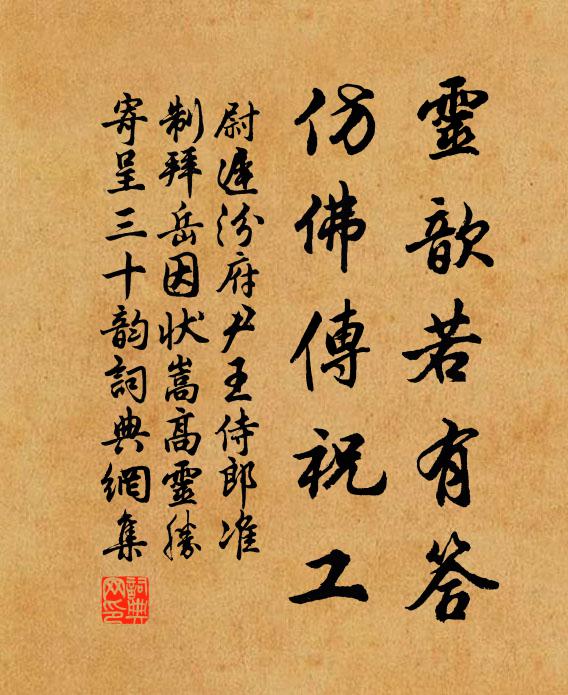 靈歆若有答
仿佛傳祝工
尉遲汾府尹王侍郎准
制拜岳因狀嵩高靈勝
寄呈三十韵詞典網集
詞典网印